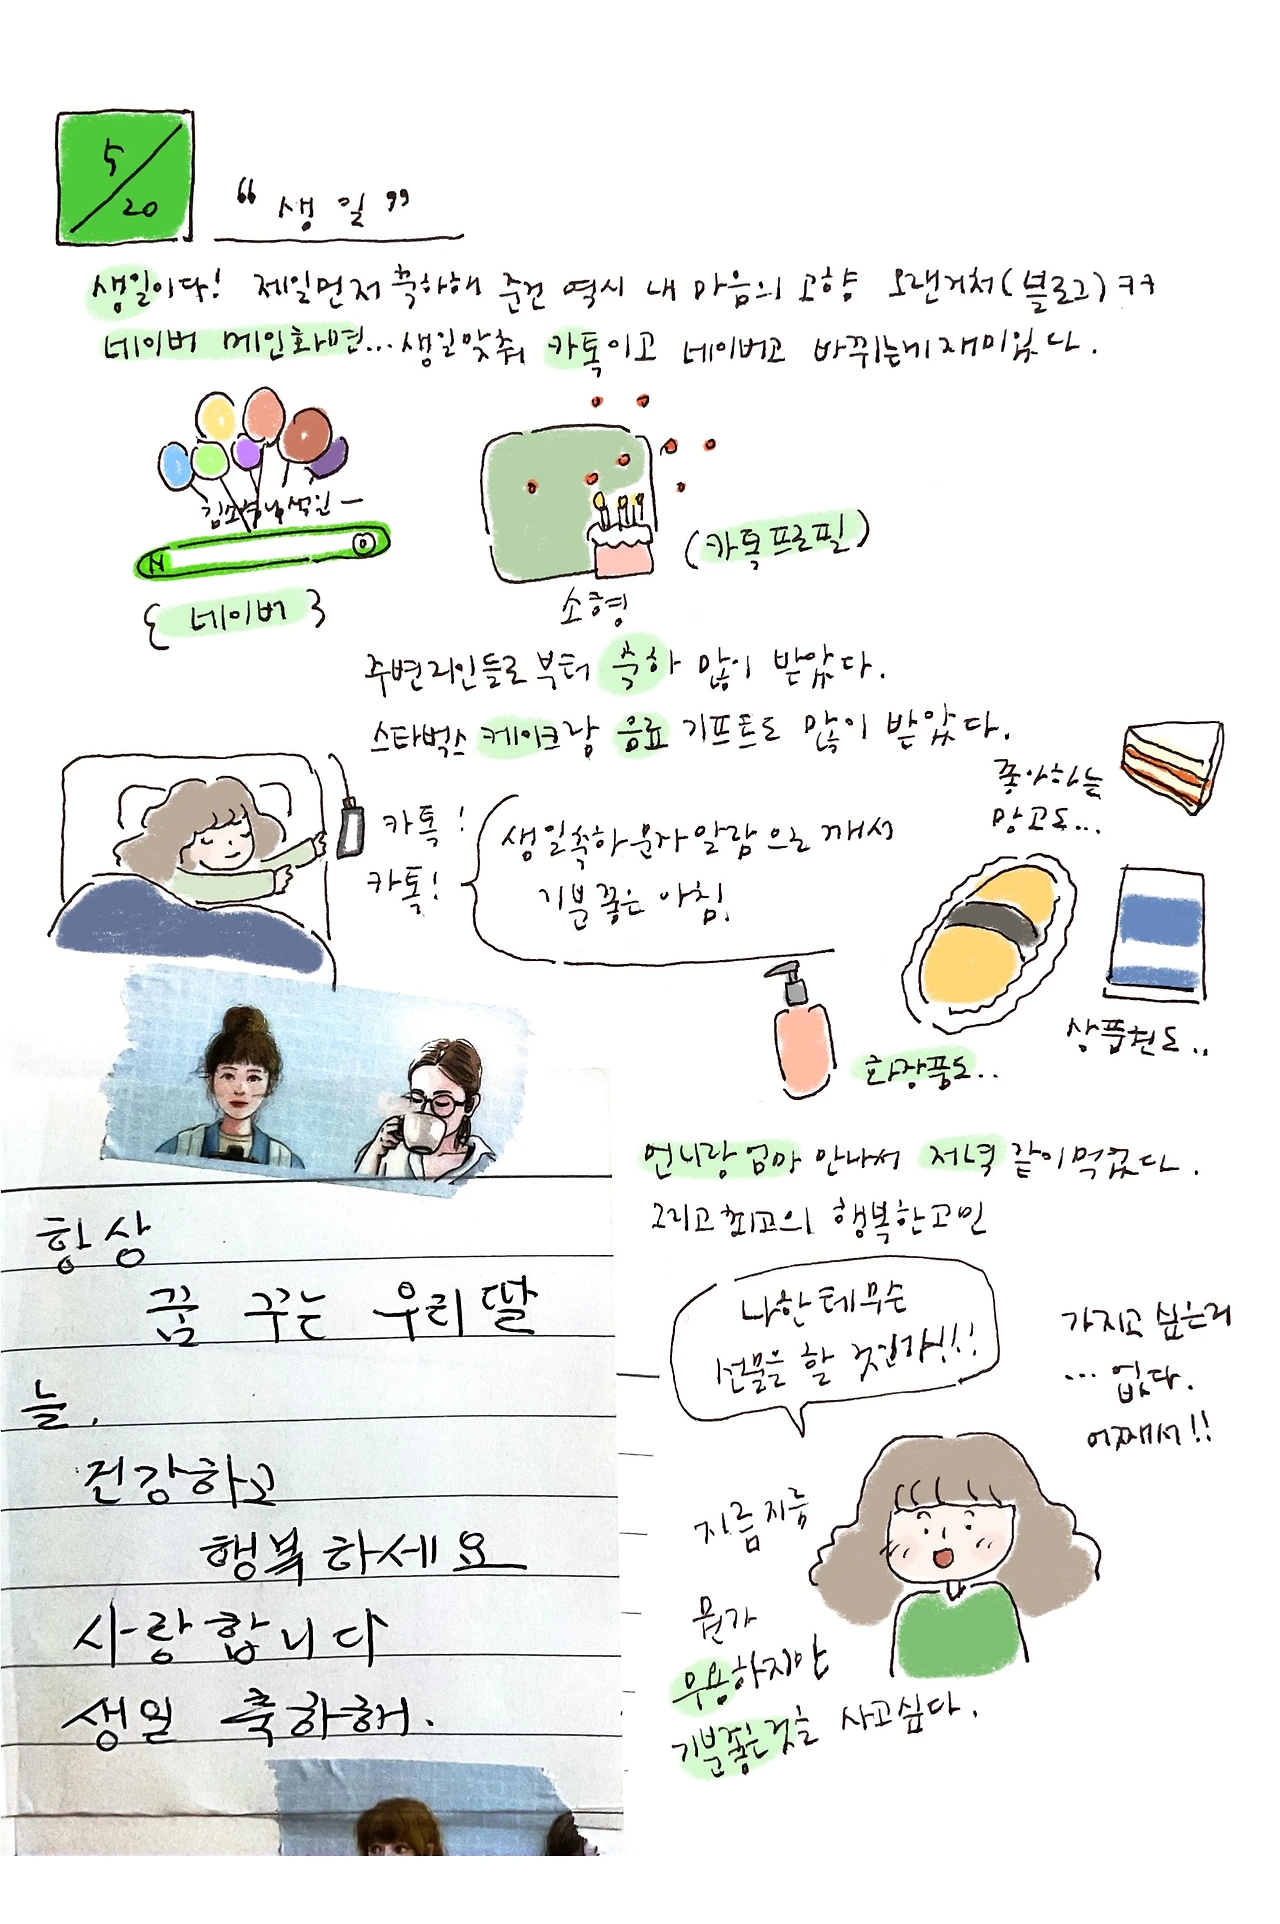 5/20
“생일”
생일이다! 제일먼저 축하해 준건 역시 내 마음의 고향 오랜거처(블로그)ㅋㅋ
네이버 메인화면... 생일맞춰 카톡이고 네이버고 바뀌는게재미있다.
생일
N
{네이버}
(카톡프로필)
소형
주변지인들로 부터 축하 많이 받았다.
스타벅스 케이크랑 음료 기프트도 많이 받았다.
좋아하는
망고도...
카톡!
카톡!
생일축하문자알람으로 깨서
기분 좋은 아침!
상품권도..
화장품도..
언니랑 엄마 만나서 저녁 같이먹었다.
그리고 최고의 행복한고민
나한테 무슨
선물을 할 것인가!!!
가지고 싶은게
... 없다.
어째서!!
지름지름
뭔가
무용하지만
기분좋은것을 사고싶다.
항상
꿈 꾸는 우리딸
늘,
건강하고
행복하세요
사랑합니다
생일 축하해.